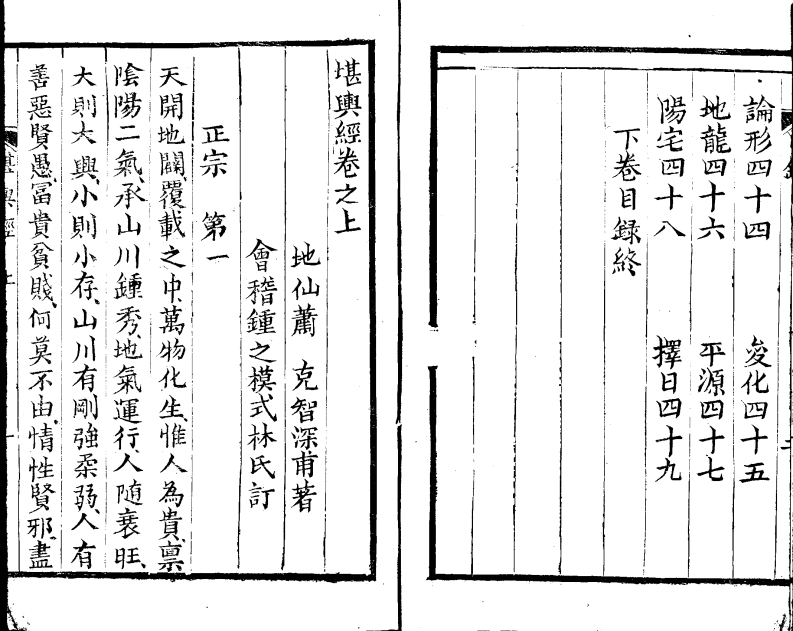 論形四十四 変化四十五
地龍四十六 平源四十七
陽宅四十八 擇日四十九
下巻目録終
堪輿經卷之上
地仙蕭 克智深甫著
會稽鍾之模式林氏訂
正宗 第一
天開地闢、覆載之中、萬物化生、惟人為貴、禀
陰陽二氣、承山川鍾秀、地氣運行、人隨衰旺、
大則大興、小則小存、山川有剛強柔弱、人有
善惡賢愚、冨貴貧賤、何莫不由、情性賢邪、盡
堪輿經 上 一